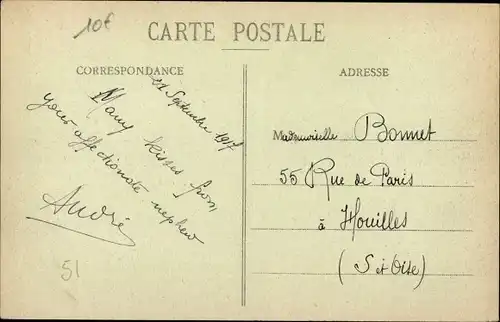 10€
CARTE POSTALE
CORRESPONDANCE
21 Septembre 1917
Many kisses from
your affectionate nephew
André
51
ADRESSE
Mademoiselle Bonnet
55 Rue de Paris
à Houilles
(S et Oise)